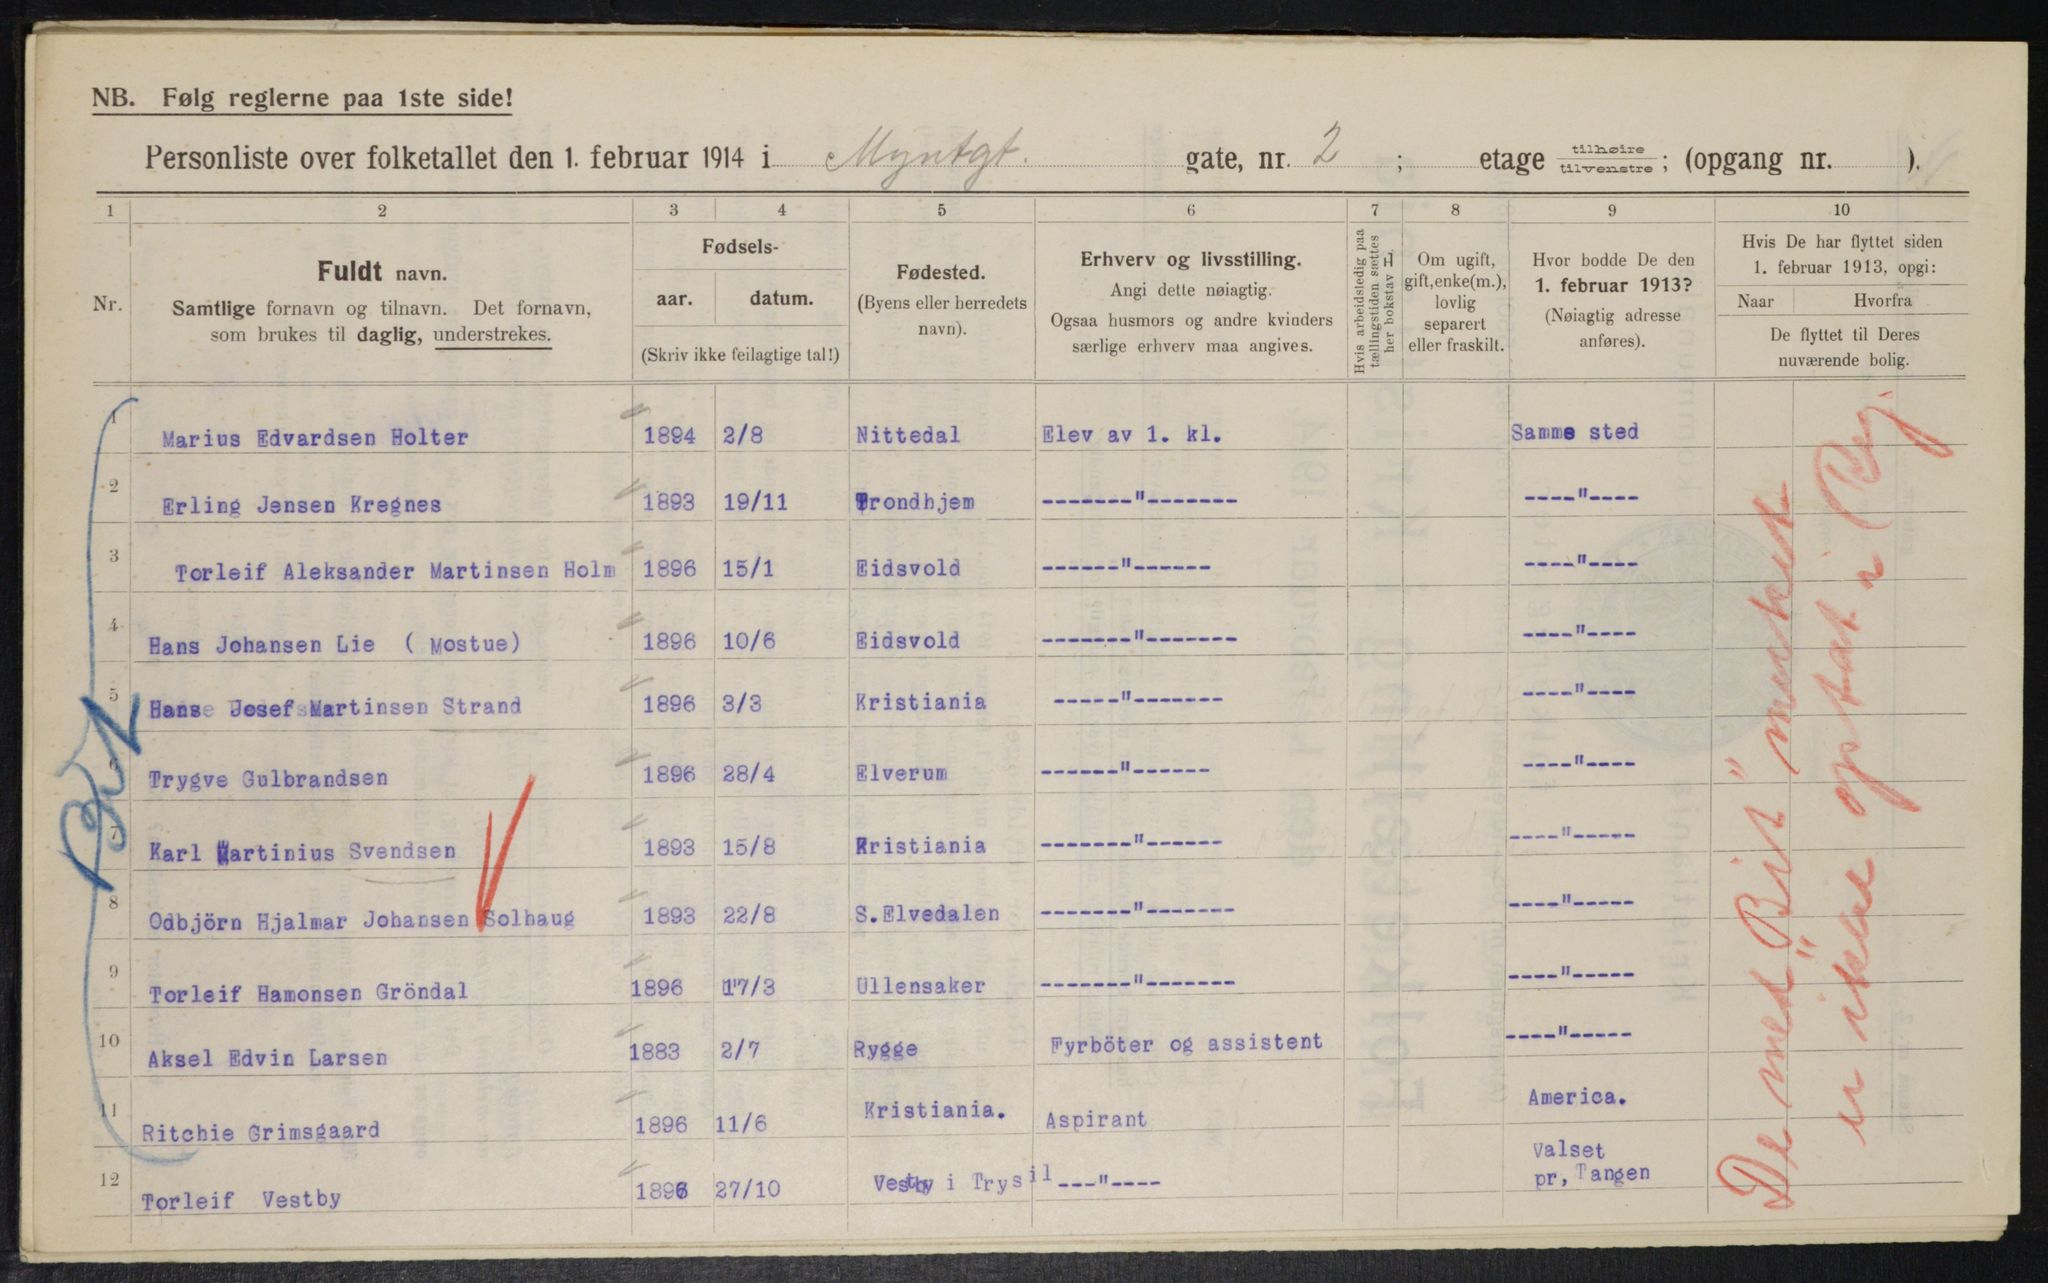 NB. Følg reglerne paa 1ste side!
Personliste over folketallet den 1. februar 1914 i Myntgt. gate, nr. 2 ; etage tilhøire tilvenstre ; (opgang nr. ).
1 2 3 4 5 6 7 8 9 10
Nr.
Fuldt navn.
Samtlige fornavn og tilnavn. Det fornavn,
som brukes til daglig, understrekes.
Fødsels-
aar. datum.
(Skriv ikke feilagtige tal!)
Fødested.
(Byens eller herredets
navn).
Erhverv og livsstilling.
Angi dette nøiagtig.
Ogsaa husmors og andre kvinders
særlige erhverv maa angives.
Hvis arbeidsledig paa
tællingstiden sættes
her bokstav L.
Om ugift,
gift, enke(m.),
lovlig
separert
eller fraskilt.
Hvor bodde De den
1. februar 1913?
(Nøiagtig adresse
anføres).
Hvis De har flyttet siden
1. februar 1913, opgi:
Naar Hvorfra
De flyttet til Deres
nuværende bolig.
1 Marius Edvardsen Holter 1894 2/8 Nittedal Elev av 1. kl. Samme sted
2 Erling Jensen Kregnes 1893 19/11 Trondhjem -------"------- ----"----
3 Torleif Aleksander Martinsen Holm 1896 15/1 Eidsvold ------"------ ----"----
4 Hans Johansen Lie ( Mostue) 1896 10/6 Eidsvold -------"------- ----"----
5 Hans Josef Martinsen Strand 1896 3/3 Kristiania -----"------- ----"----
6 Trygve Gulbrandsen 1896 28/4 Elverum ------"------ ----"----
7 Karl Martinius Svendsen 1893 15/8 Kristiania -------"------ ----"-----
8 Odbjörn Hjalmar Johansen Solhaug 1893 22/8 S.Elvedalen -------"------- ----"-----
9 Torleif Hamonsen Gröndal 1896 17/3 Ullensaker -------"------- ----"-----
10 Aksel Edvin Larsen 1883 2/7 Rygge Fyrböter og assistent ----"-----
11 Ritchie Grimsgaard 1896 11/6 Kristiania. Aspirant America.
12 Torleif Vestby 1896 27/10 Vestby i Trysil ---"---- Valset
pr, Tangen
De med "Bist" merket
er ikke optat i Reg.